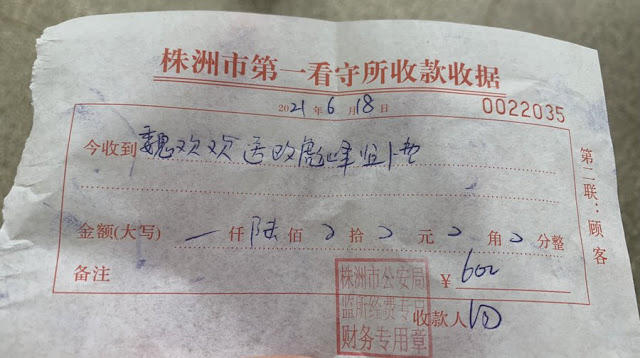 株洲市第一看守所收款收据
2021年6月18日 0022035
今收到魏欢欢
金额(大写) 一仟陆佰 元 角 分整
备注 ¥ 600
收款人
株洲市公安局
监所经费专户
财务专用章
第二联:顾客